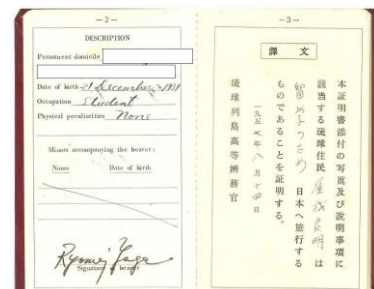 — 2 —
DESCRIPTION
Permanent domicile
Date of birth 21 December 1931
Occupation Student
Physical peculiarities None
Minors accompanying the bearer:
Name Date of birth
Ryomei Yaga
Signature of bearer
— 3 —
譯 文
本証明書添付の写真及び説明事項に
該当する琉球住民 屋我良明 は
留学のため 日本へ旅行する
ものであることを証明する。
一九五七年八月十四日
琉球列島高等弁務官